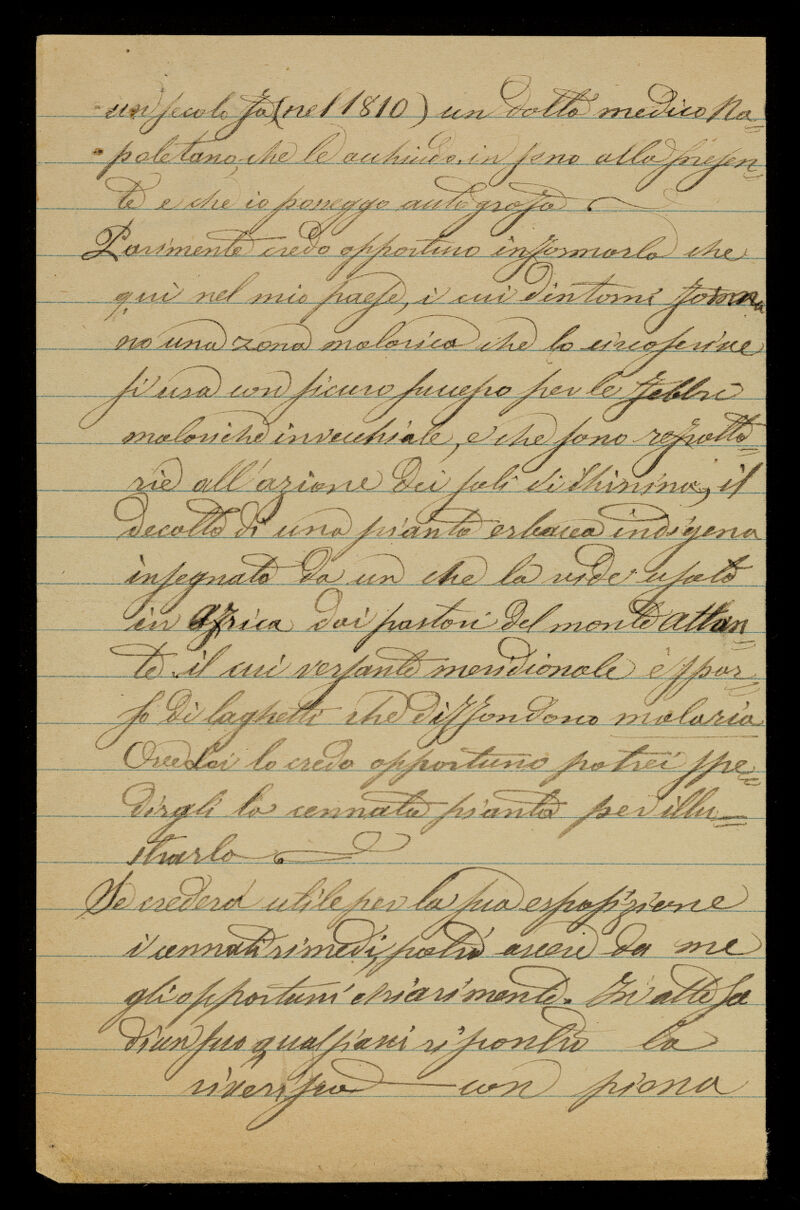 un secolo fa (nel 1810) un dotto medico Na=
poletano, che le acchiudo in seno alla presen=
te e che io posseggo autografa.
Parimente credo opportuno informarla che
qui nel mio paese, i cui dintorni forma
no una zona malarica che lo circoscrive
si usa con sicuro successo per le febbri
malariche invecchiate, e che sono refratta=
rie all'azione dei sali di Chinina, il
decotto di una pianta erbacea indigena
insegnato da un che la vide usata
in Affrica dai pastori del monte Atlan=
te il cui versante meridionale è spar=
so di laghetti che diffondono malaria
Ove Lei lo creda opportuno potrei spe=
dirgli la cennata pianta per illu=
strarla
Se crederà utile per la sua esposizione
i cennati rimedi, potrà avere da me
gli opportuni chiarimenti. In attesa
di un suo qualsiasi riscontro la
riverisco con piena